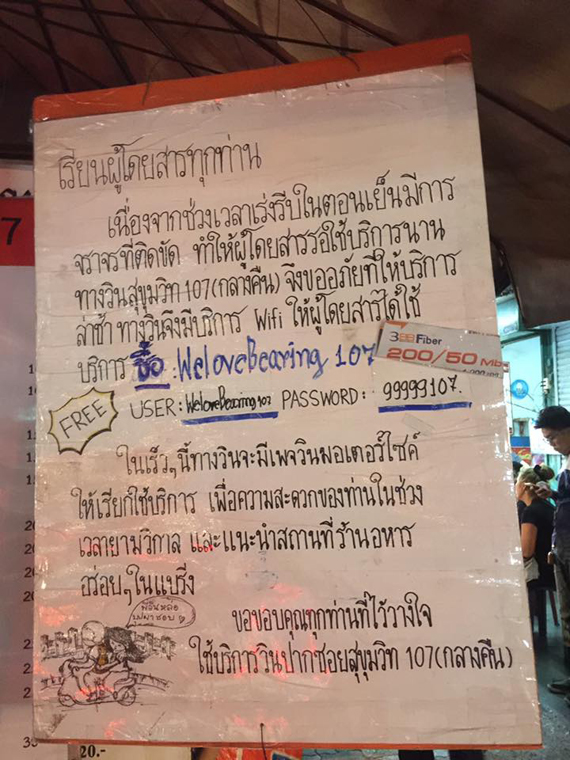 เรียนผู้โดยสารทุกท่าน
เนื่องจากช่วงเวลาเร่งรีบในตอนเย็นมีการ
จราจรที่ติดขัด ทำให้ผู้โดยสารรอใช้บริการนาน
ทางวินสุขุมวิท 107(กลางคืน) จึงขออภัยที่ให้บริการ
ล่าช้า ทางวินจึงมีบริการ Wifi ให้ผู้โดยสารได้ใช้
บริการ ชื่อ : Welovebearing 107
3BB Fiber
200/50 Mb
FREE
USER : Welovebearing 107 PASSWORD : 99999107.
ในเร็วๆนี้ทางวินจะมีเพจวินมอเตอร์ไซค์
ให้เรียกใช้บริการ เพื่อความสะดวกของท่านในช่วง
เวลายามวิกาล และแนะนำสถานที่ร้านอาหาร
อร่อยๆในแบริ่ง
พี่วินหล่อ
ขอขอบคุณทุกท่านที่ไว้วางใจ
ใช้บริการวินปากซอยสุขุมวิท 107(กลางคืน)
7
20.-